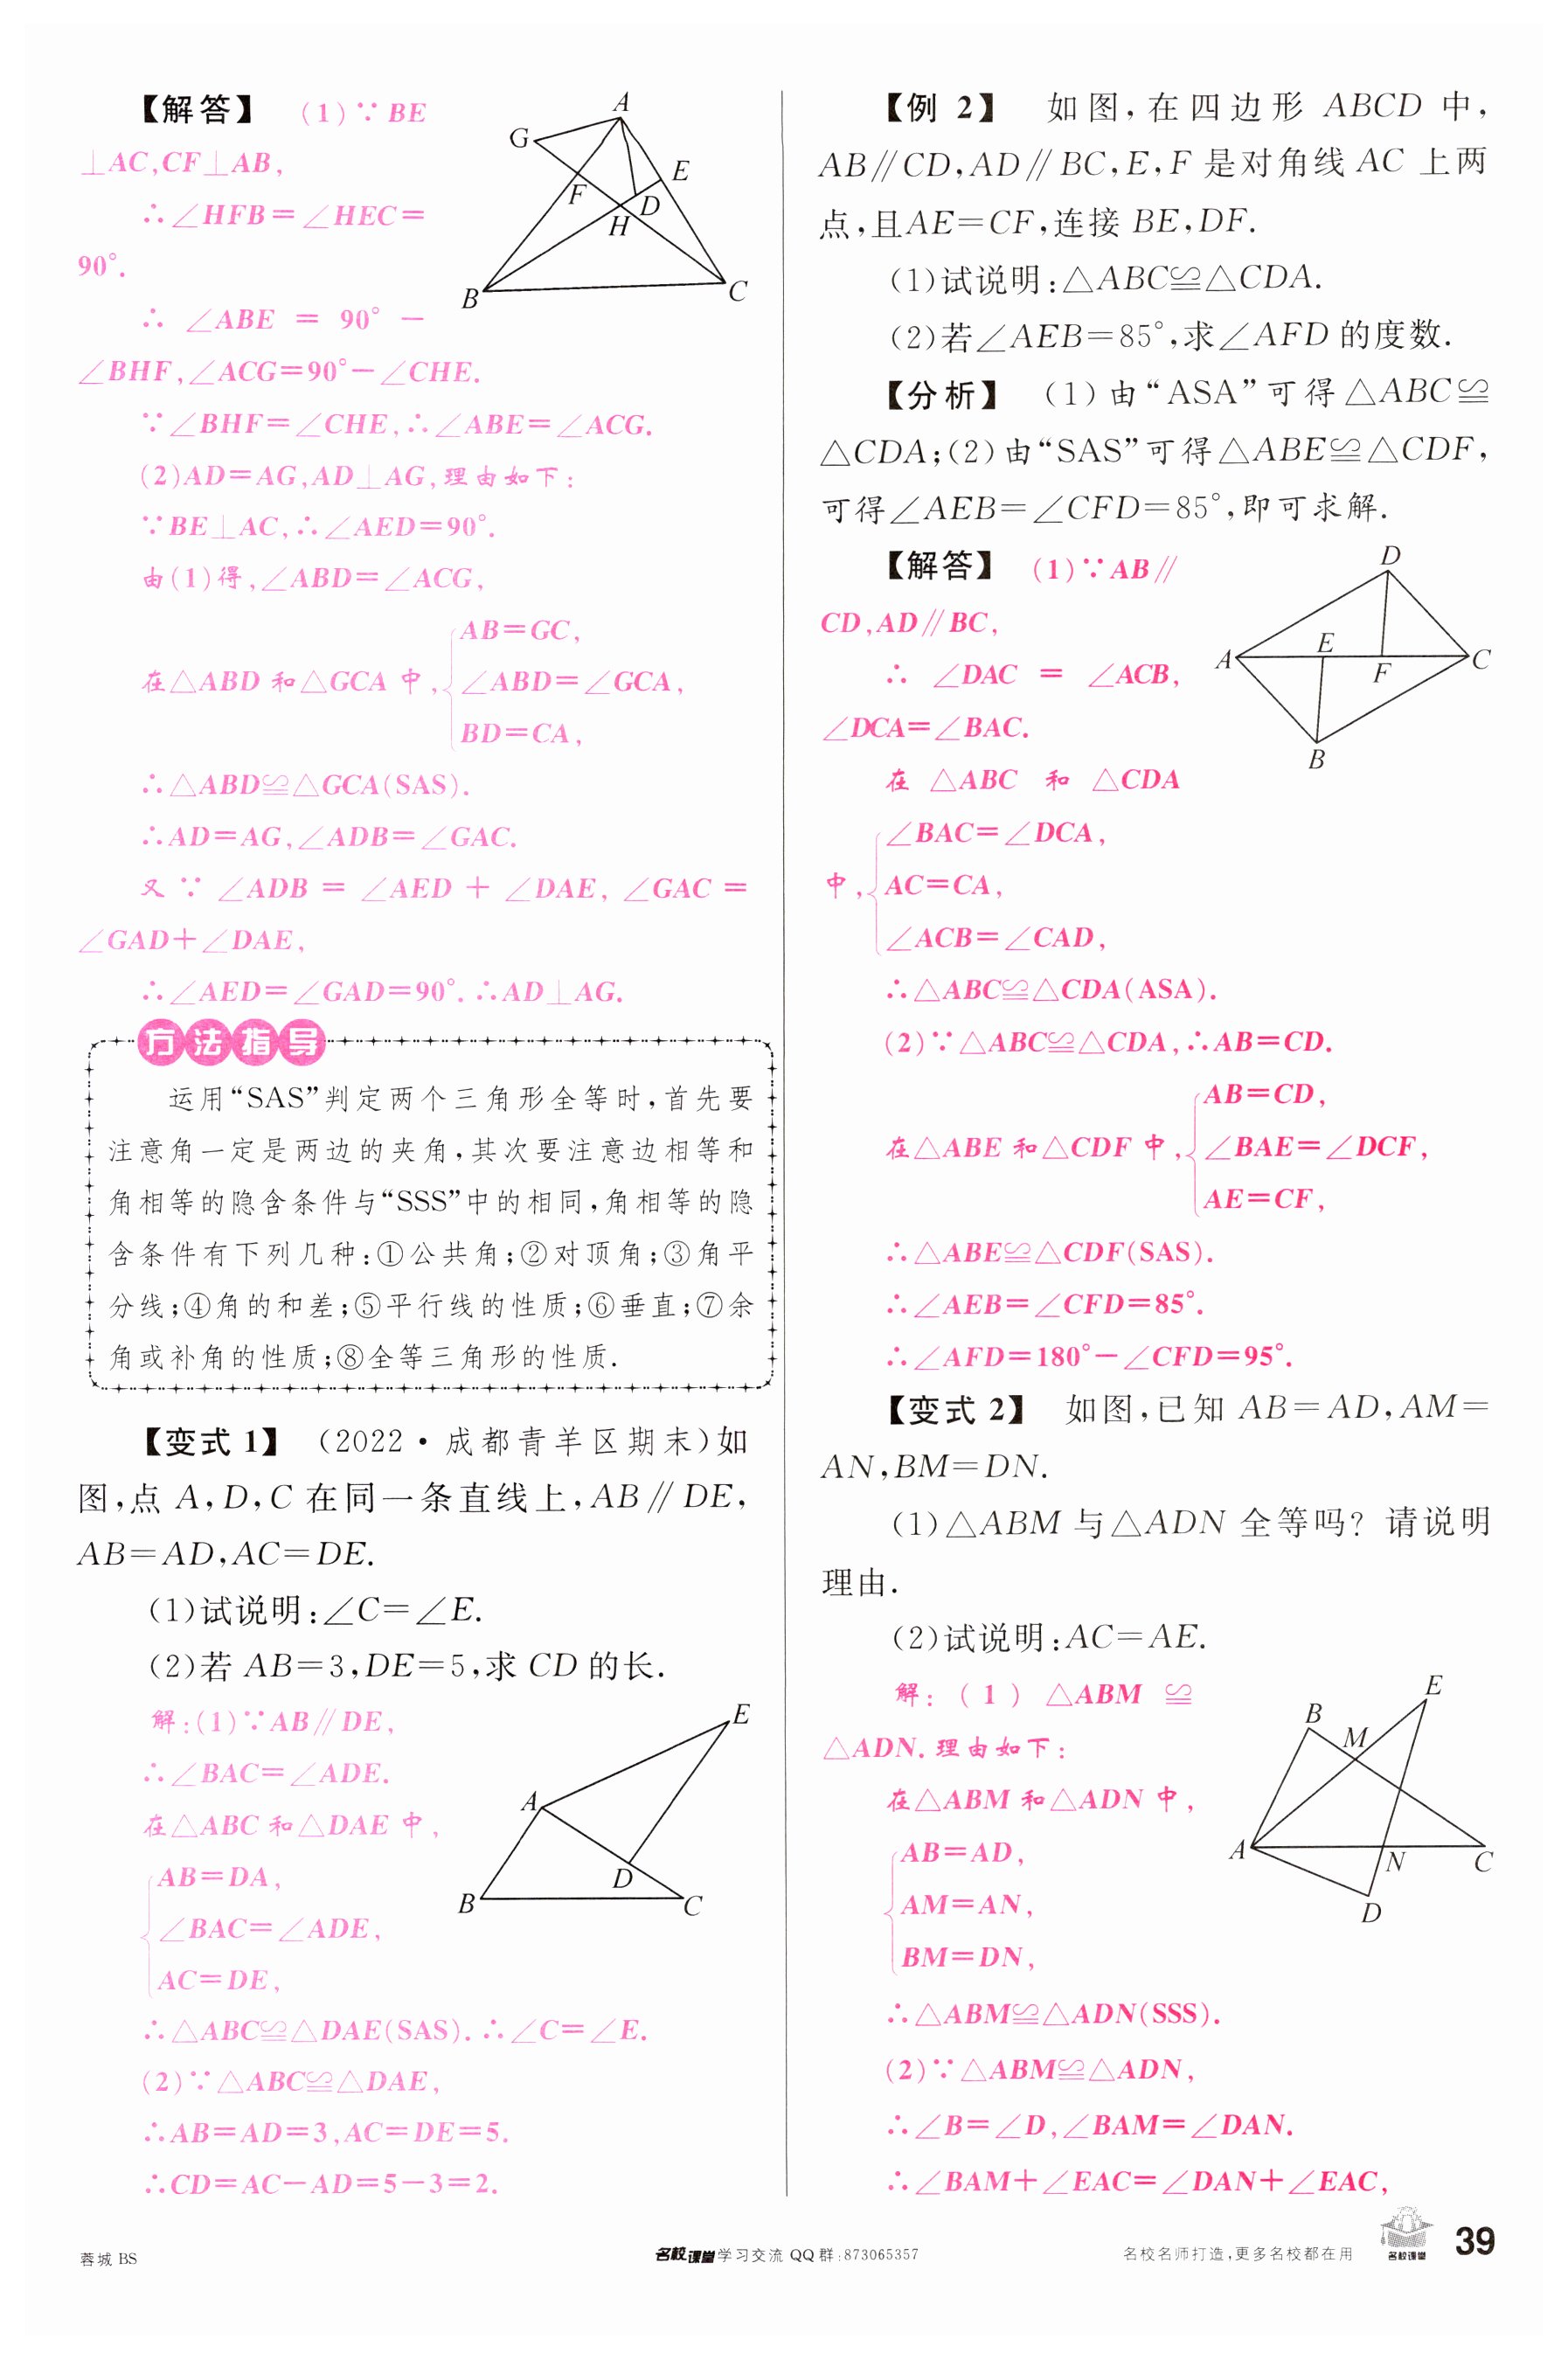 【解答】 (1)∵BE
⊥AC,CF⊥AB,
∴∠HFB=∠HEC=
90°.
∴ ∠ABE = 90° -
∠BHF,∠ACG=90°-∠CHE.
∵∠BHF=∠CHE,∴∠ABE=∠ACG.
(2)AD=AG,AD⊥AG,理由如下:
∵BE⊥AC,∴∠AED=90°.
由(1)得,∠ABD=∠ACG,
AB=GC,
在△ABD 和△GCA 中,∠ABD=∠GCA,
BD=CA,
∴△ABD≌△GCA(SAS).
∴AD=AG,∠ADB=∠GAC.
又∵ ∠ADB = ∠AED + ∠DAE, ∠GAC =
∠GAD+∠DAE,
∴∠AED=∠GAD=90°.∴AD⊥AG.
A
G
E
F
D
H
B
C
方法指导
运用“SAS”判定两个三角形全等时,首先要
注意角一定是两边的夹角,其次要注意边相等和
角相等的隐含条件与“SSS”中的相同,角相等的隐
含条件有下列几种:①公共角;②对顶角;③角平
分线;④角的和差;⑤平行线的性质;⑥垂直;⑦余
角或补角的性质;⑧全等三角形的性质.
【变式 1】 (2022·成都青羊区期末)如
图,点 A,D,C 在同一条直线上,AB∥DE,
AB=AD,AC=DE.
(1)试说明:∠C=∠E.
(2)若 AB=3,DE=5,求 CD 的长.
解:(1)∵AB∥DE,
∴∠BAC=∠ADE.
在△ABC 和△DAE 中,
AB=DA,
∠BAC=∠ADE,
AC=DE,
∴△ABC≌△DAE(SAS).∴∠C=∠E.
(2)∵△ABC≌△DAE,
∴AB=AD=3,AC=DE=5.
∴CD=AC-AD=5-3=2.
E
A
D
B
C
【例 2】 如图,在四边形 ABCD 中,
AB∥CD,AD∥BC,E,F 是对角线 AC 上两
点,且AE=CF,连接 BE,DF.
(1)试说明:△ABC≌△CDA.
(2)若∠AEB=85°,求∠AFD 的度数.
【分析】 (1)由“ASA”可得△ABC≌
△CDA;(2)由“SAS”可得△ABE≌△CDF,
可得∠AEB=∠CFD=85°,即可求解.
【解答】 (1)∵AB∥
CD,AD∥BC,
∴ ∠DAC = ∠ACB,
∠DCA=∠BAC.
在 △ABC 和 △CDA
∠BAC=∠DCA,
中,AC=CA,
∠ACB=∠CAD,
∴△ABC≌△CDA(ASA).
(2)∵△ABC≌△CDA,∴AB=CD.
AB=CD,
在△ABE 和△CDF 中,∠BAE=∠DCF,
AE=CF,
∴△ABE≌△CDF(SAS).
∴∠AEB=∠CFD=85°.
∴∠AFD=180°-∠CFD=95°.
D
E
A
F
C
B
【变式 2】 如图,已知 AB=AD,AM=
AN,BM=DN.
(1)△ABM 与△ADN 全等吗? 请说明
理由.
(2)试说明:AC=AE.
解: (1) △ABM ≌
△ADN.理由如下:
在△ABM 和△ADN 中,
AB=AD,
AM=AN,
BM=DN,
∴△ABM≌△ADN(SSS).
(2)∵△ABM≌△ADN,
∴∠B=∠D,∠BAM=∠DAN.
∴∠BAM+∠EAC=∠DAN+∠EAC,
E
B
M
A
N
C
D
蓉城 BS
名校课堂学习交流 QQ 群:873065357
名校名师打造,更多名校都在用
名校课堂
39